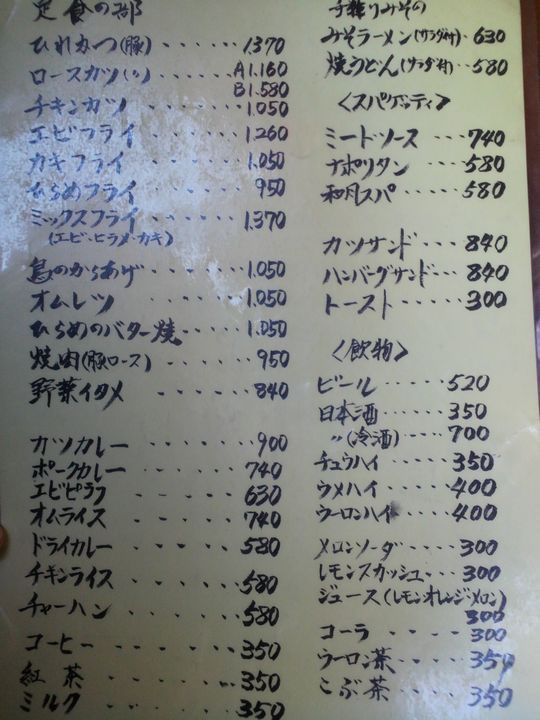 定食の部
ひれかつ(豚)......1370
ロースカツ(〃)....A1.160
B1.580
チキンカツ......1.050
エビフライ......1260
カキフライ......1.050
ひらめフライ.....950
ミックスフライ....1.370
(エビ・ヒラメ・カキ)
鳥のからあげ.....1.050
オムレツ......1.050
ひらめのバター焼......1.050
焼肉(豚ロース)......950
野菜イタメ......840
カツカレー......900
ポークカレー......740
エビピラフ......630
オムライス......740
ドライカレー......580
チキンライス.....580
チャーハン.....580
コーヒー.....350
紅茶.....350
ミルク.....350
手造りみその
みそラーメン(サラダ付)..630
焼うどん(サラダ付)..580
<スパゲッティ>
ミートソース...740
ナポリタン....580
和風スパ....580
カツサンド....840
ハンバーグサンド...840
トースト.....300
<飲物>
ビール.....520
日本酒.....350
〃(冷酒)....700
チュウハイ.....350
ウメハイ.....400
ウーロンハイ....400
メロンソーダ.....300
レモンスカッシュ...300
ジュース(レモン・オレンジ・メロン)
300
コーラ....300
ウーロン茶....350
こぶ茶....350